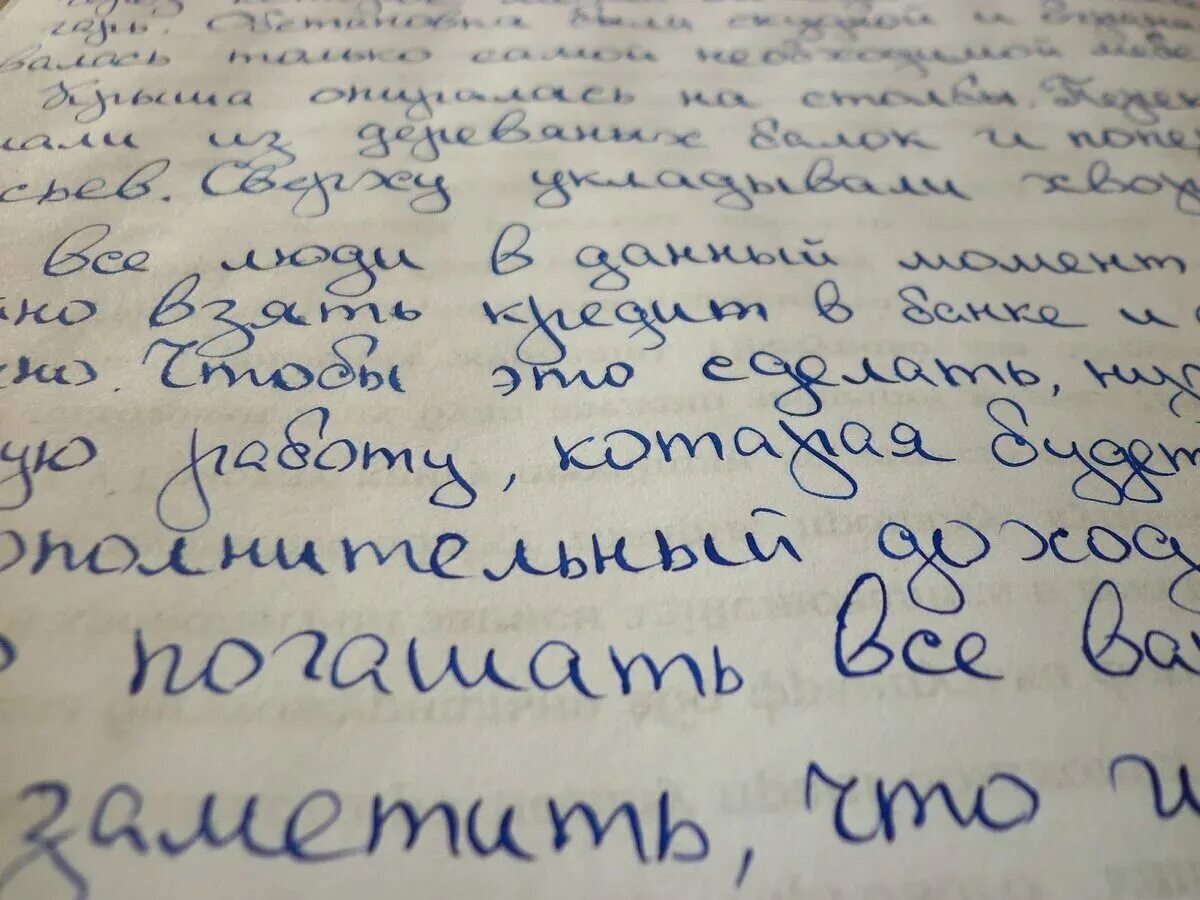 гарь. Обстановка были скудной и
валась только самой необходимой мебе
Крыша опиралась на столбы. Перек
лали из дереваных балок и попе
сьев. Сверху укладывали хвох
Все люди в данный момент
но взять кредит в банке и
Чтобы это сделать, нуж
ую работу, которая будет
ополнительный доход
о погашать все ва
заметить, что и